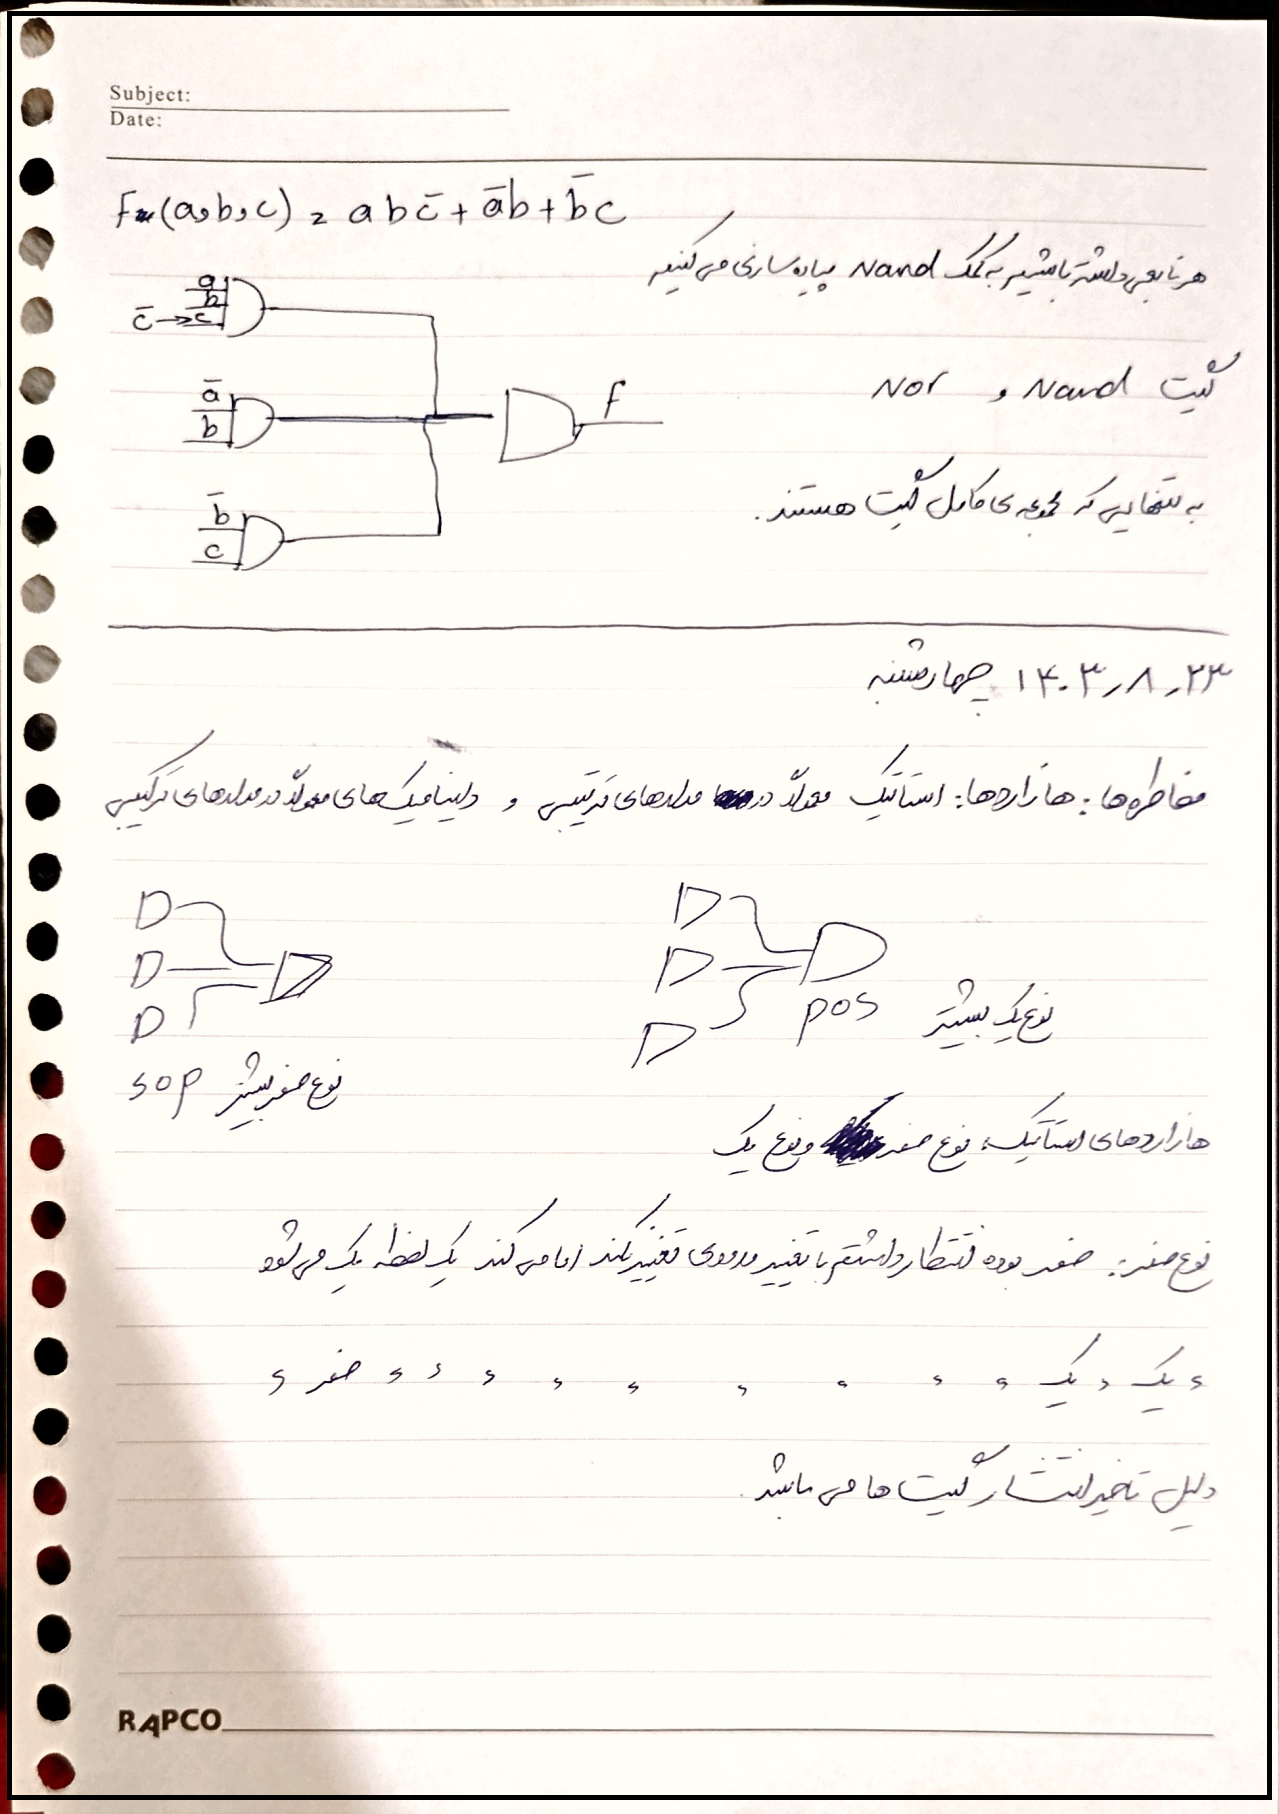 Subject:
Date:
F(a,b,c) = abc̄ + āb + b̄c
هر تابعی داشته باشیم به کمک Nand پیاده سازی می کنیم
a
b
c̄ → c
ā
b
f
گیت Nand و Nor
b̄
c
به تنهایی که مجموعه ی کامل گیت هستند.
۱۴۰۳٫۸٫۲۳ چهارشنبه
مخاطره ها: هازاردها: استاتیک معمولاً در مدارهای ترتیبی و داینامیک های معمولاً در مدارهای ترکیبی
نوع یک بیشتر pos
نوع صفر بیشتر sop
هازاردهای استاتیک: نوع صفر و نوع یک
نوع صفر: صفر بوده انتظار داشتیم با تغییر ورودی تغییر نکند اما می کند یک لحظه یک می شود
ء یک ء یک ء ء ء ء ء ء ء ء ء ء صفر ء
دلیل تاخیر انتشار گیت ها می باشد.
RAPCO